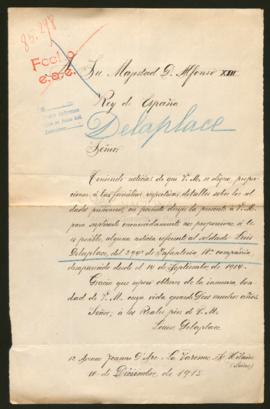 85.298
Fco
e.a.e.
A Su Majestad D. Alfonso XIII
Rey de España
Delaplace
Señor
Teniendo noticias de que V. M. se digna propor-
cionar á las familias respectivas detalles sobre los sol-
dados prisioneros, me permito dirigir la presente á V. M.
para suplicarle encarecidamente me proporcione á ser
posible, alguna noticia referente al soldado Luis
Delaplace, del 294º de Infantería 18ª compañía,
desaparecido desde el 14 de Septiembre de 1914.
Gracia que espero obtener de la inmensa bon-
dad de V. M. cuya vida guarde Dios muchos años.
Señor, á los Reales pies de V. M.
Louise Delaplace
12 Avenue Jeanne D'Arc - La Varenne St Hilaire
(Seine)
10 de Diciembre, de 1915